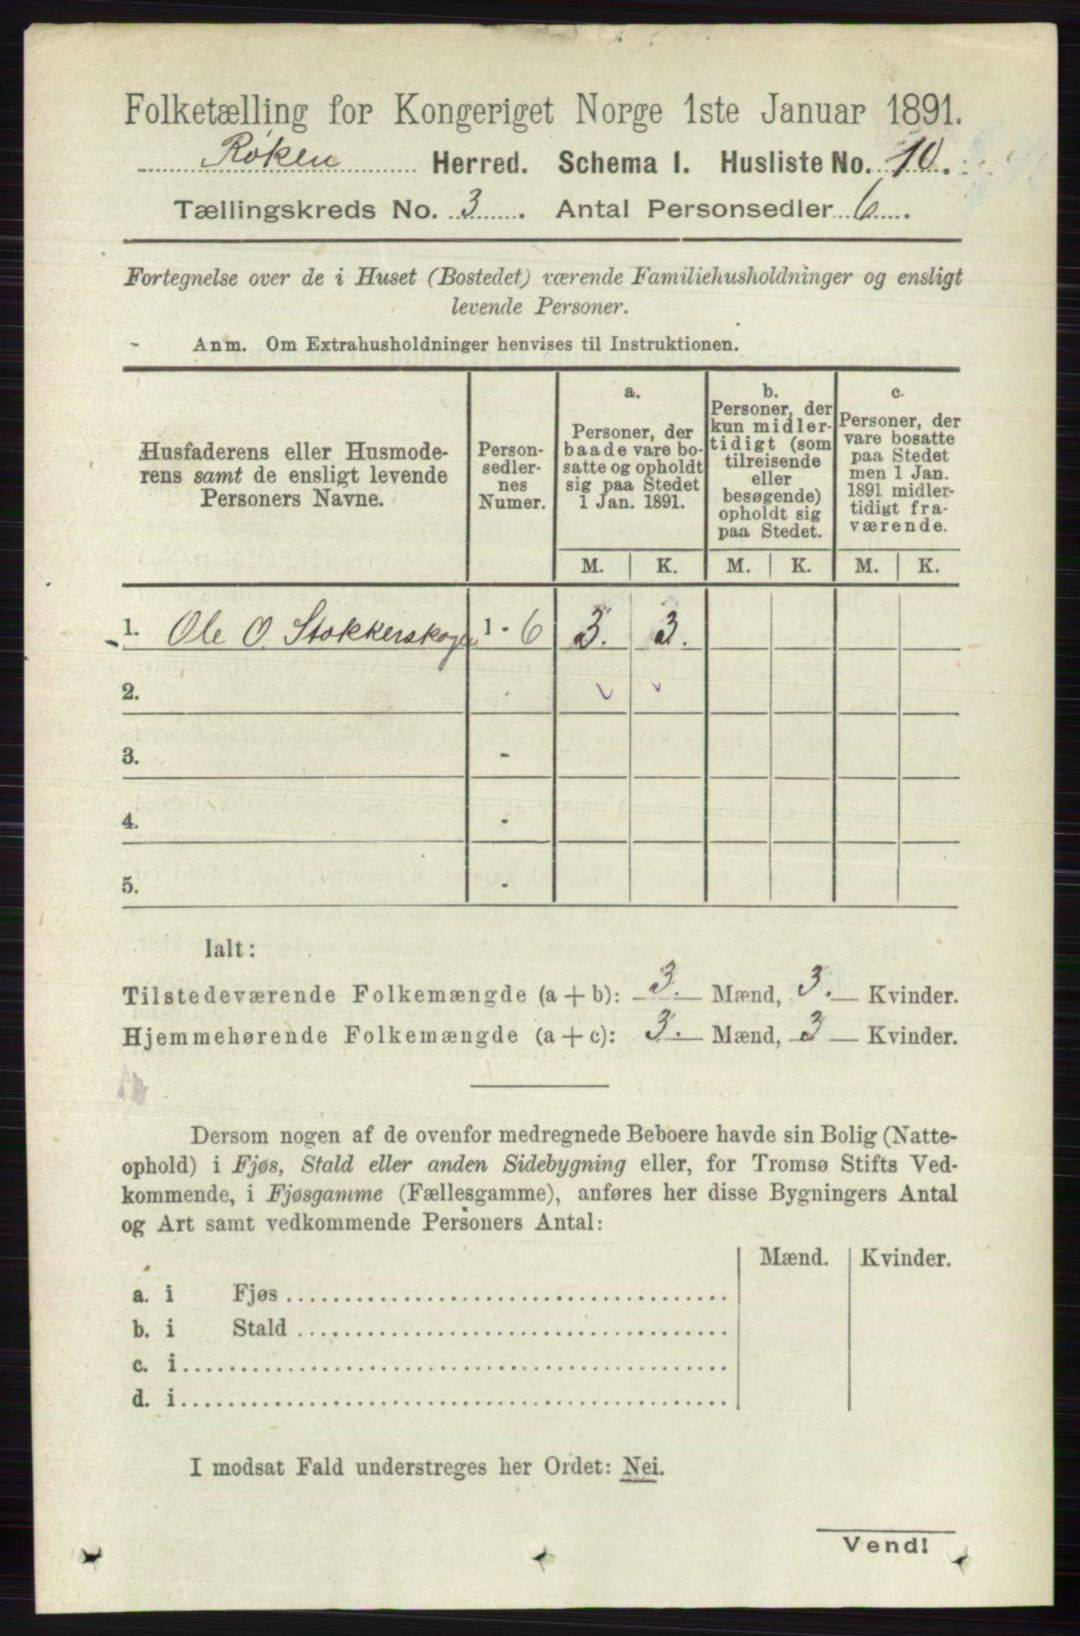 Folketælling for Kongeriget Norge 1ste Januar 1891.
Røken Herred. Schema I. Husliste No. 10.
Tællingskreds No. 3. Antal Personsedler 6.
Fortegnelse over de i Huset (Bostedet) værende Familiehusholdninger og ensligt
levende Personer.
Anm. Om Extrahusholdninger henvises til Instruktionen.
Husfaderens eller Husmode-
rens samt de ensligt levende
Personers Navne.
Person-
sedler-
nes
Numer.
a.
Personer, der
baade vare bo-
satte og opholdt
sig paa Stedet
1 Jan. 1891.
b.
Personer, der
kun midler-
tidigt (som
tilreisende
eller
besøgende)
opholdt sig
paa Stedet.
c.
Personer, der
vare bosatte
paa Stedet
men 1 Jan.
1891 midler-
tidigt fra-
værende.
M. K. M. K. M. K.
1. Ole O. Stokkerskogen 1 - 6 3. 3.
2. -
3. -
4. -
5. -
Ialt:
Tilstedeværende Folkemængde (a + b): 3. Mænd, 3. Kvinder.
Hjemmehørende Folkemængde (a + c): 3. Mænd, 3 Kvinder.
Dersom nogen af de ovenfor medregnede Beboere havde sin Bolig (Natte-
ophold) i Fjøs, Stald eller anden Sidebygning eller, for Tromsø Stifts Ved-
kommende, i Fjøsgamme (Fællesgamme), anføres her disse Bygningers Antal
og Art samt vedkommende Personers Antal:
Mænd. Kvinder.
a. i Fjøs
b. i Stald
c. i
d. i
I modsat Fald understreges her Ordet: Nei.
Vend!